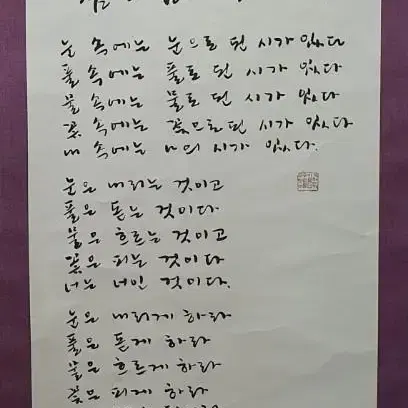 눈 속에는 눈으로 된 시가 있다
풀 속에는 풀로 된 시가 있다
물 속에는 물로 된 시가 있다
꽃 속에는 꽃으로 된 시가 있다
내 속에는 나의 시가 있다.
눈은 내리는 것이고
풀은 돋는 것이다
물은 흐르는 것이고
꽃은 피는 것이다
너는 너인 것이다.
눈은 내리게 하라
풀은 돋게 하라
물은 흐르게 하라
꽃은 피게 하라